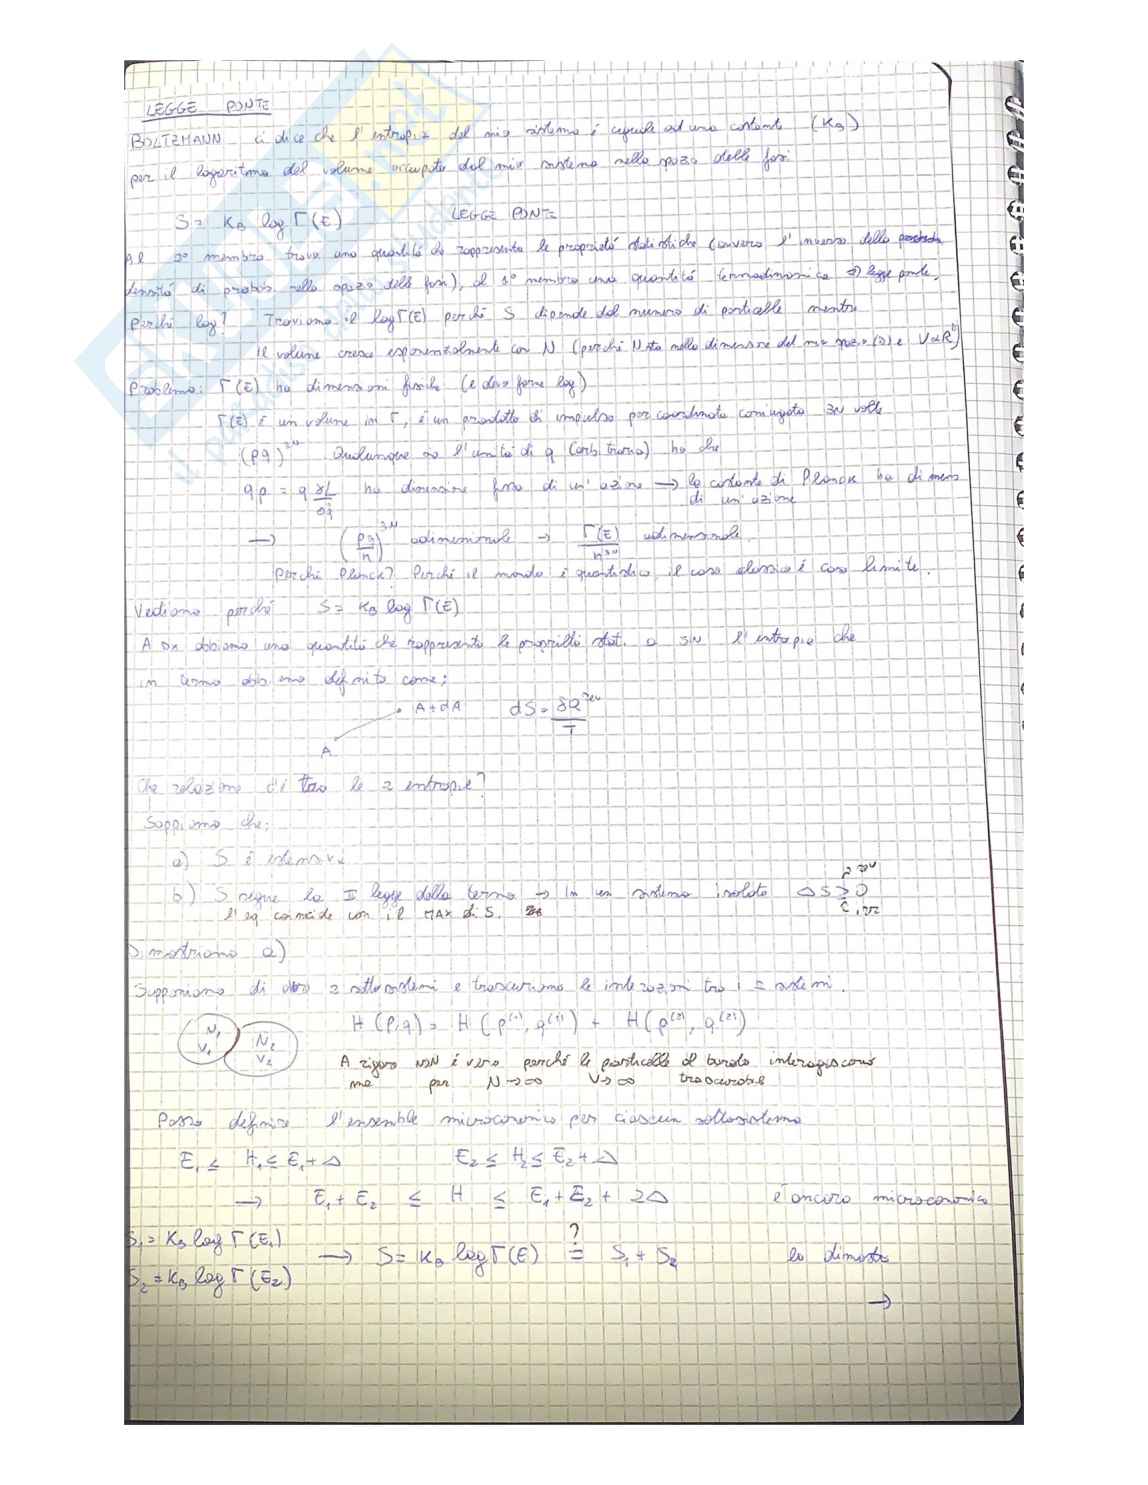 LEGGE PONTE
BOLTZMANN ci dice che l'entropia del mio sistema è uguale ad una costante (KB)
per il logaritmo del volume occupato dal mio sistema nello spazio delle fasi
S = KB log Γ(E) LEGGE PONTE
Al 2° membro trovo una quantità che rappresenta le proprietà statistiche (ovvero l'inverso della
densità di probab. nello spazio delle fasi), al 1° membro una quantità termodinamica ⇒ legge ponte.
Perché log? Troviamo il log Γ(E) perché S dipende dal numero di particelle mentre
il volume cresce esponenzialmente con N (perché N sta nella dimensione del mio spazio (D) e V∝R^D)
Problema: Γ(E) ha dimensioni fisiche (e devo farne log)
Γ(E) è un volume in Γ, è un prodotto di impulso per coordinata coniugata 3N volte
(pq)^3N. Qualunque sia l'unità di q (arbitraria) ho che
qp = q ∂L/∂q̇ ha dimensione fisica di un'azione → la costante di Planck ha dimens
di un'azione
→ (pq/h)^3N adimensionale → Γ(E)/h^3N adimensionale.
Perché Planck? Perché il mondo è quantistico, il caso classico è caso limite.
Vediamo perché S = KB log Γ(E)
A DX abbiamo una quantità che rappresenta le proprietà stat. a SIN l'entropia che
in termo abbiamo definito come:
A A+dA dS = δQ^rev/T
Che relazione c'è tra le 2 entropie?
Sappiamo che:
a) S è estensiva
b) S segue la II legge della termo → In un sistema isolato ΔS ≥ 0
l'eq coincide con il MAX di S.
Dimostriamo a)
Supponiamo di 2 sottosistemi e trascuriamo le interazioni tra i 2 sistemi.
N1 V1 N2 V2 H(p,q) = H(p^(1), q^(1)) + H(p^(2), q^(2))
A rigore NON è vero perché le particelle al bordo interagiscono
ma per N→∞ V→∞ trascurabile
Posso definire l'ensemble microcanonico per ciascun sottosistema
E1 ≤ H1 ≤ E1+Δ E2 ≤ H2 ≤ E2+Δ
→ E1+E2 ≤ H ≤ E1+E2+2Δ è ancora microcanonico
S1 = KB log Γ(E1)
S2 = KB log Γ(E2) → S = KB log Γ(E) ?= S1+S2 lo dimostro
→